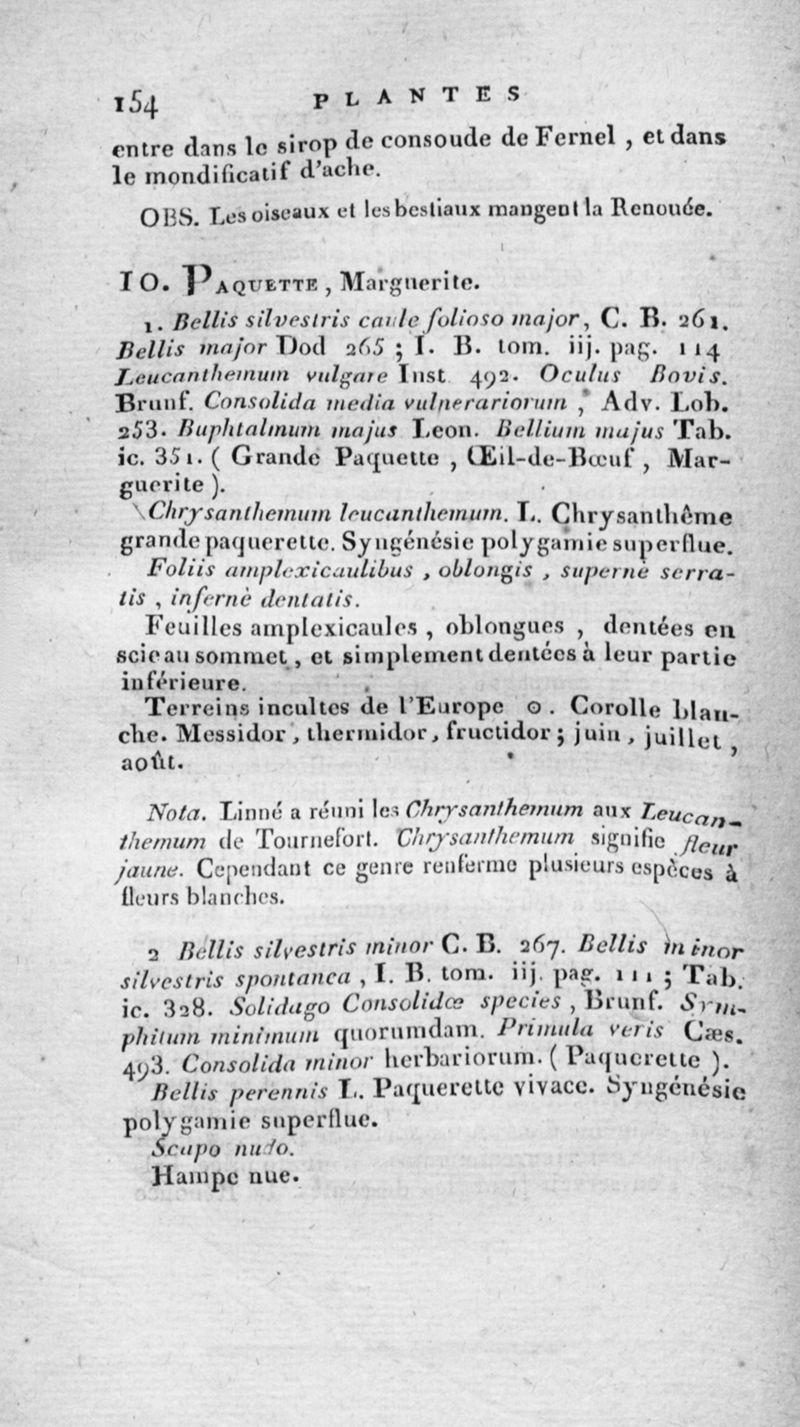 154 PLANTES
entre dans le sirop de consoude de Fernel , et dans
le mondificatif d'ache.
OBS. Les oiseaux et les bestiaux mangent la Renouée.
10. PAQUETTE , Marguerite.
1. Bellis silvestris caule folioso major, C. B. 261.
Bellis major Dod 265 ; I. B. tom. iij. pag. 114
Leucanthemum vulgare Inst 492. Oculus Bovis.
Brunf. Consolida media vulnerariorum , Adv. Lob.
253. Buphtalmum majus Leon. Bellium majus Tab.
ic. 351. ( Grande Paquette , Œil-de-Bœuf , Mar-
guerite ).
Chrysanthemum leucanthemum. L. Chrysanthême
grande paquerette. Syngénésie polygamie superflue.
Foliis amplexicaulibus , oblongis , supernè serra-
tis , infernè dentatis.
Feuilles amplexicaules , oblongues , dentées en
scie au sommet, et simplement dentées à leur partie
inférieure.
Terreins incultes de l'Europe ⊙ . Corolle blan-
che. Messidor, thermidor, fructidor ; juin , juillet ,
août.
Nota. Linné a réuni les Chrysanthemum aux Leucan-
themum de Tournefort. Chrysanthemum signifie fleur
jaune. Cependant ce genre renferme plusieurs espèces à
fleurs blanches.
2 Bellis silvestris minor C. B. 267. Bellis minor
silvestris spontanea , I. B. tom. iij. pag. 111 ; Tab.
ic. 328. Solidago Consolidæ species , Brunf. Sym-
phitum minimum quorumdam. Primula veris Cæs.
493. Consolida minor herbariorum. ( Paquerette ).
Bellis perennis L. Paquerette vivace. Syngénésie
polygamie superflue.
Scapo nudo.
Hampe nue.